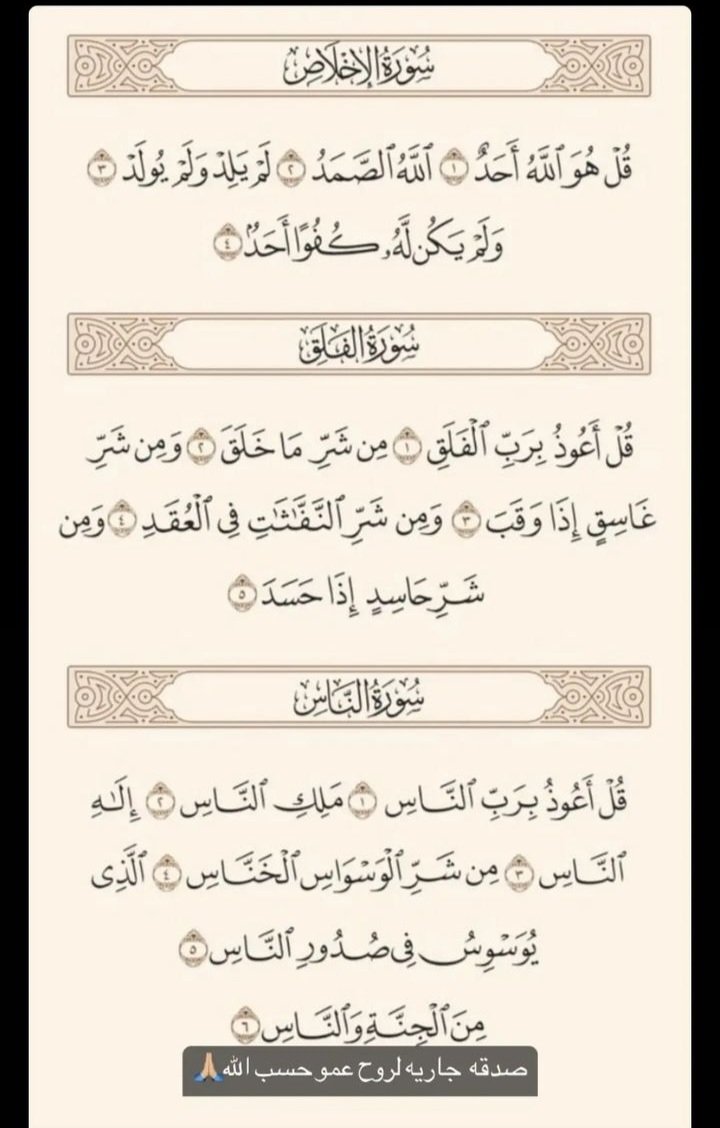 سُورَةُ الإِخْلَاصِ
قُلْ هُوَ ٱللَّهُ أَحَدٌ ١ ٱللَّهُ ٱلصَّمَدُ ٢ لَمْ يَلِدْ وَلَمْ يُولَدْ ٣
وَلَمْ يَكُن لَّهُۥ كُفُوًا أَحَدٌۢ ٤
سُورَةُ الفَلَقِ
قُلْ أَعُوذُ بِرَبِّ ٱلْفَلَقِ ١ مِن شَرِّ مَا خَلَقَ ٢ وَمِن شَرِّ
غَاسِقٍ إِذَا وَقَبَ ٣ وَمِن شَرِّ ٱلنَّفَّٰثَٰتِ فِى ٱلْعُقَدِ ٤ وَمِن
شَرِّ حَاسِدٍ إِذَا حَسَدَ ٥
سُورَةُ النَّاسِ
قُلْ أَعُوذُ بِرَبِّ ٱلنَّاسِ ١ مَلِكِ ٱلنَّاسِ ٢ إِلَٰهِ
ٱلنَّاسِ ٣ مِن شَرِّ ٱلْوَسْوَاسِ ٱلْخَنَّاسِ ٤ ٱلَّذِى
يُوَسْوِسُ فِى صُدُورِ ٱلنَّاسِ ٥
مِنَ ٱلْجِنَّةِ وَٱلنَّاسِ ٦
صدقه جاريه لروح عمو حسب الله🙏🏼